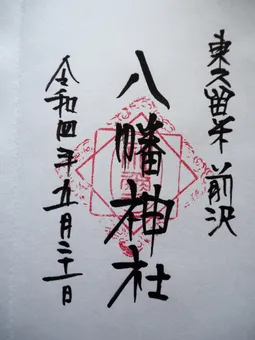 東久留米 前沢
八幡神社
令和四年五月三十一日